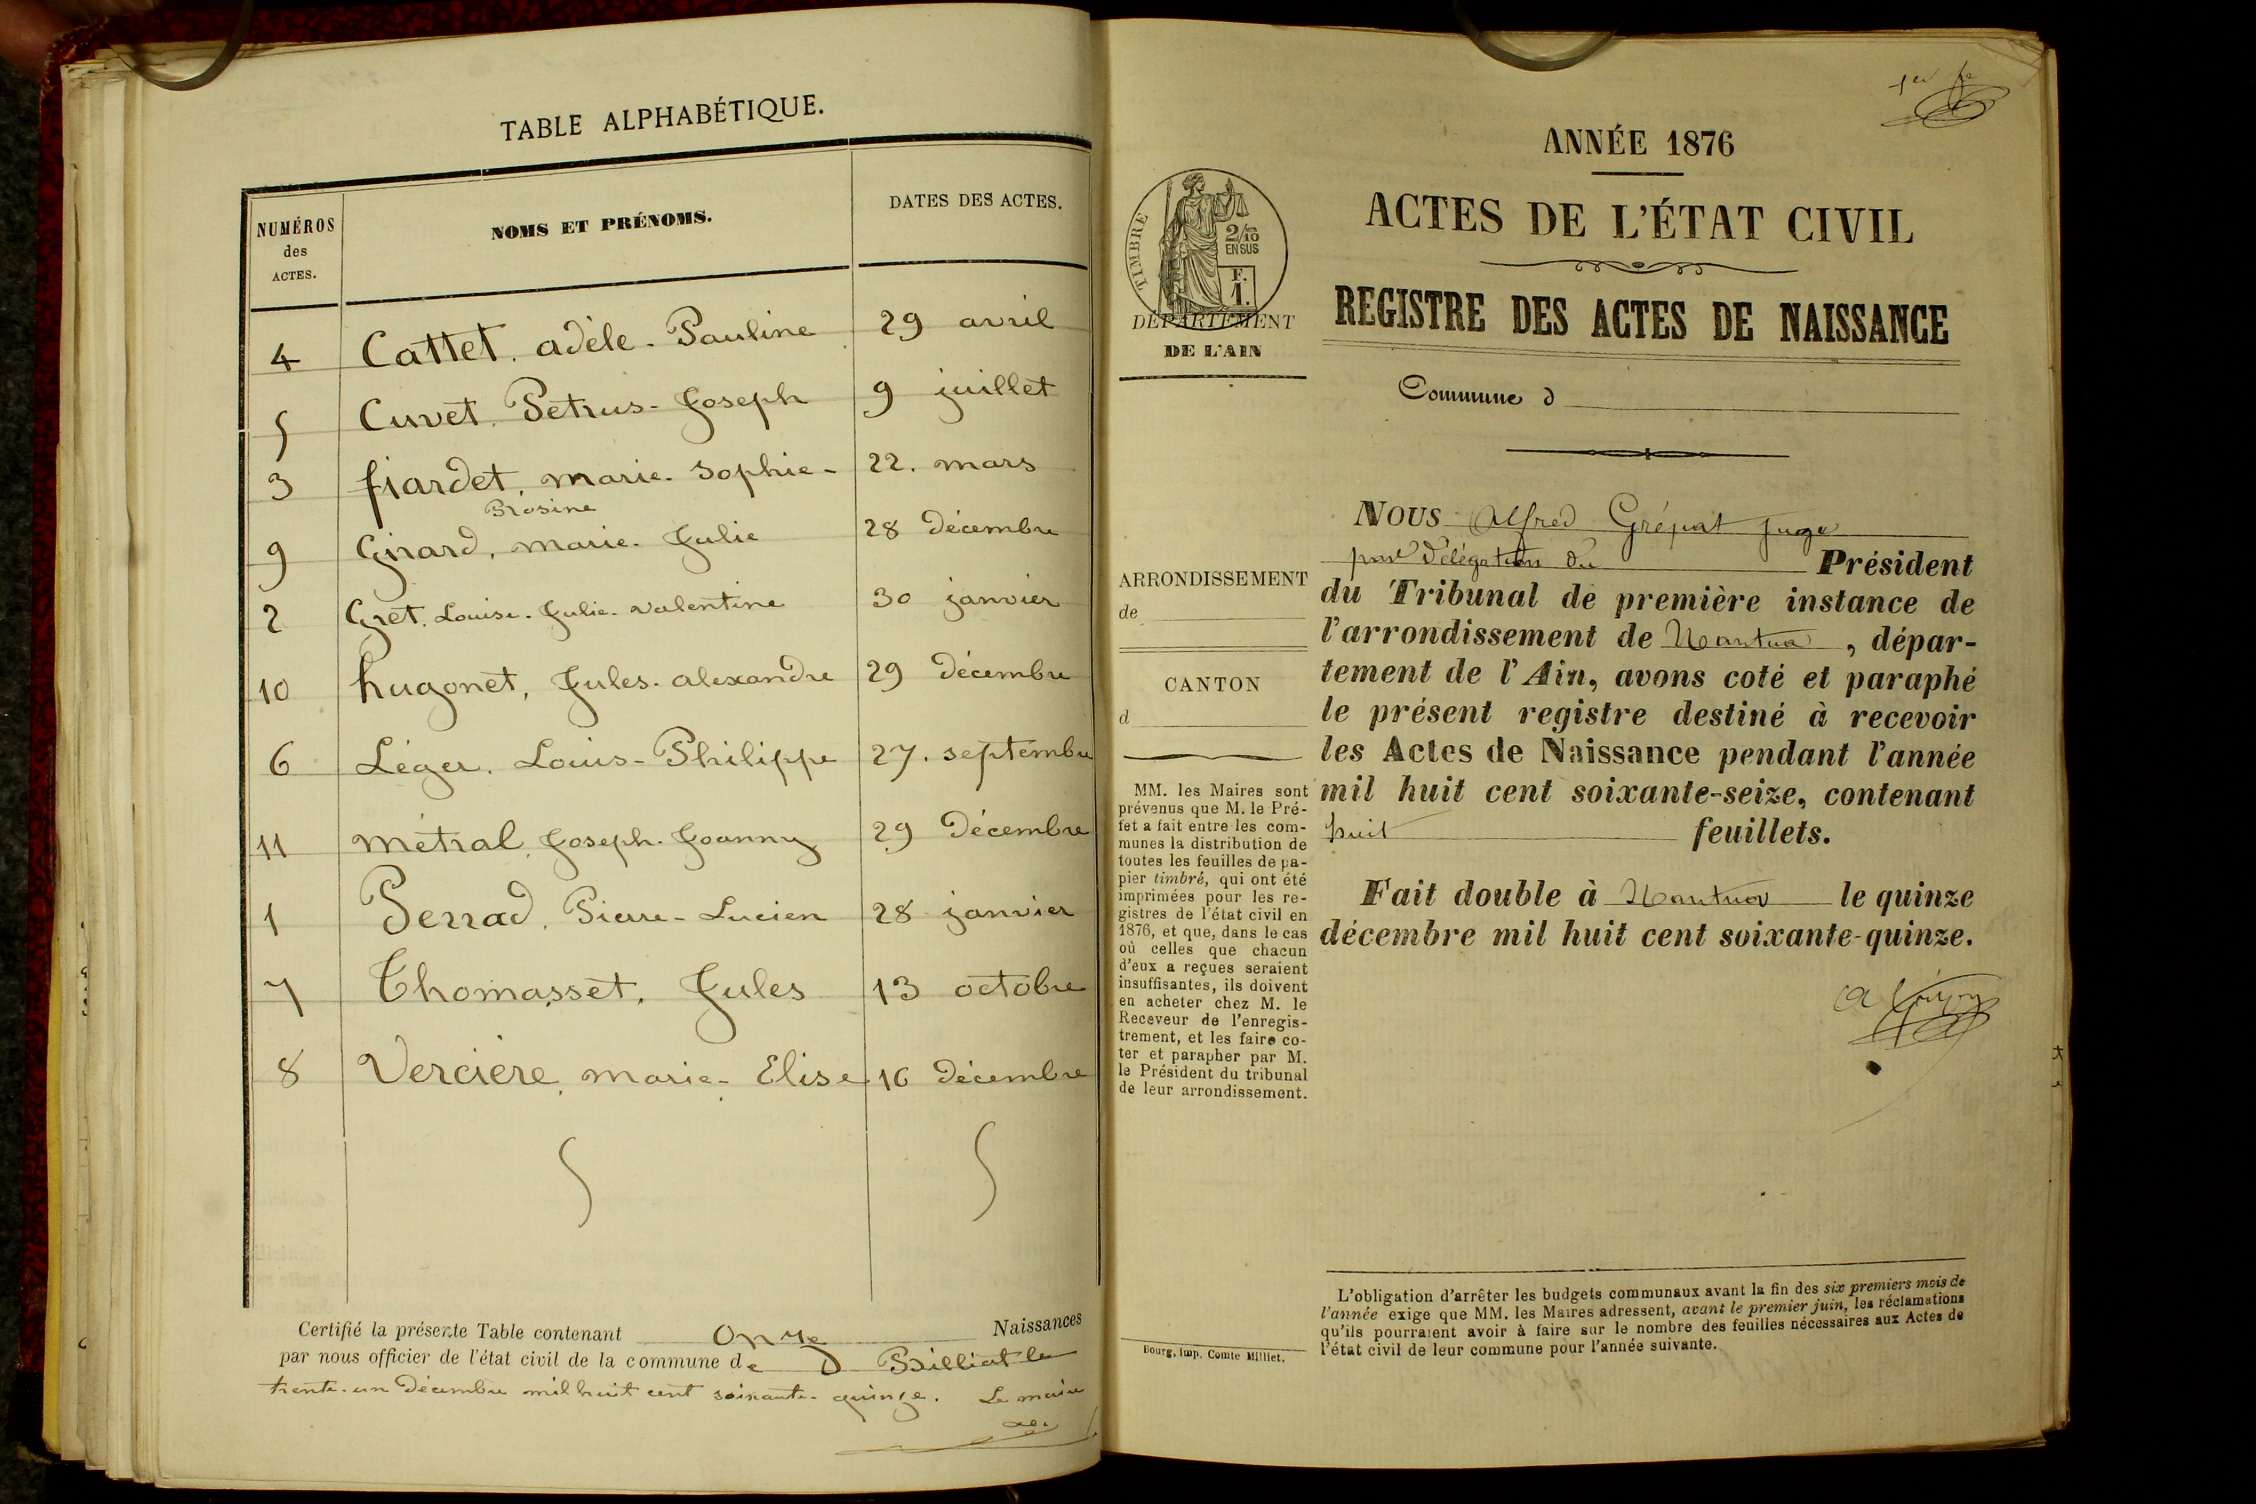 TABLE ALPHABÉTIQUE.
NUMÉROS des ACTES.
NOMS ET PRÉNOMS.
DATES DES ACTES.
4 Cattet. adèle. Pauline 29 avril
5 Cuvet. Petrus-Joseph 9 juillet
3 fiardet, marie. Sophie- 22. mars
Rosine
9 Girard, marie. Julie 28 Décembre
2 Gret. Louise. Julie. valentine 30 janvier
10 hugonet, Jules. alexandre 29 Décembre
6 Léger. Louis-Philippe 27. septembre
11 métral, Joseph. Joanny 29 Décembre
1 Perrad, Pierre-Lucien 28 janvier
7 Thomasset, Jules 13 octobre
8 Vercière, marie-Elise 16 Décembre
Certifié la présente Table contenant onze Naissances
par nous officier de l'état civil de la commune de Billiat le
trente-un Décembre mil huit cent soixante-quinze. Le maire
1er
ANNÉE 1876
ACTES DE L'ÉTAT CIVIL
REGISTRE DES ACTES DE NAISSANCE
Commune d
TIMBRE
2/10
EN SUS
F.
1.
DÉPARTEMENT
DE L'AIN
ARRONDISSEMENT
de
CANTON
d
MM. les Maires sont
prévenus que M. le Pré-
fet a fait entre les com-
munes la distribution de
toutes les feuilles de pa-
pier timbré, qui ont été
imprimées pour les re-
gistres de l'état civil en
1876, et que, dans le cas
où celles que chacun
d'eux a reçues seraient
insuffisantes, ils doivent
en acheter chez M. le
Receveur de l'enregis-
trement, et les faire co-
ter et parapher par M.
le Président du tribunal
de leur arrondissement.
Bourg, imp. Comte Milliet.
NOUS Alfred juge
par délégation du Président
du Tribunal de première instance de
l'arrondissement de Nantua, dépar-
tement de l'Ain, avons coté et paraphé
le présent registre destiné à recevoir
les Actes de Naissance pendant l'année
mil huit cent soixante-seize, contenant
huit feuillets.
Fait double à Nantua le quinze
décembre mil huit cent soixante-quinze.
L'obligation d'arrêter les budgets communaux avant la fin des six premiers mois de
l'année exige que MM. les Maires adressent, avant le premier juin, les réclamations
qu'ils pourraient avoir à faire sur le nombre des feuilles nécessaires aux Actes de
l'état civil de leur commune pour l'année suivante.